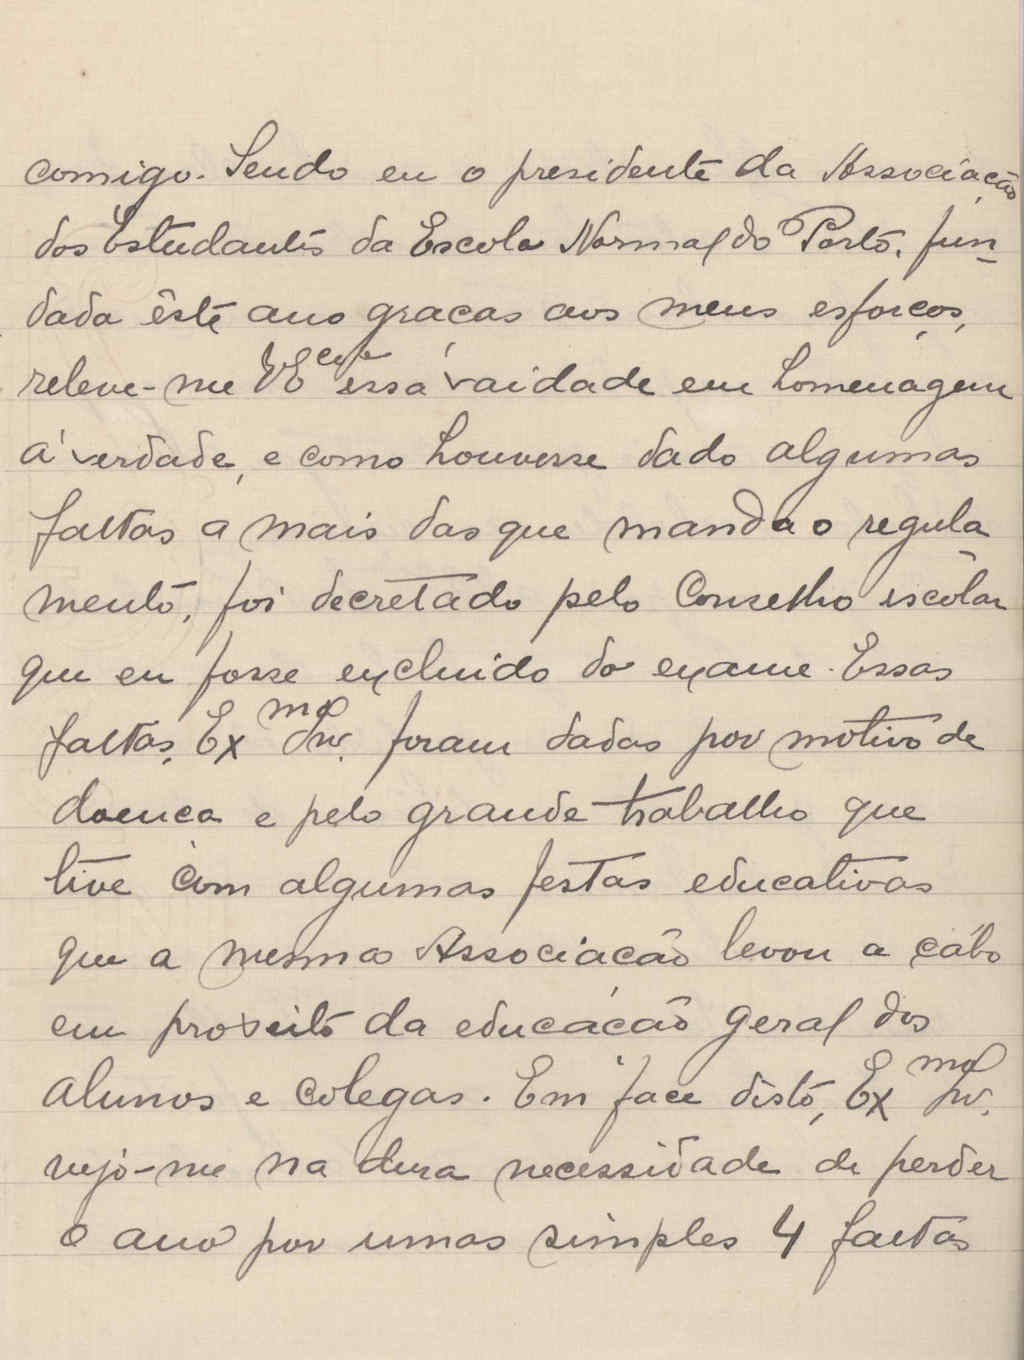 comigo. Sendo eu o presidente da Associação
dos Estudantes da Escola Normal do Porto, fun-
dada êste ano graças aos meus esforços,
releve-me V Ex.cia essa vaidade em homenagem
á verdade, e como houvesse dado algumas
faltas a mais das que manda o regula
mento, foi decretado pelo Conselho escolar
que eu fosse excluido do exame. Essas
faltas, Ex mo Snr. foram dadas por motivo de
doença e pelo grande trabalho que
tive com algumas festas educativas
que a mesma Associação levou a cabo
em proveito da educação geral dos
alunos e colegas. Em face disto, Ex mo Snr.
vejo-me na dura necessidade de perder
o ano por umas simples 4 faltas